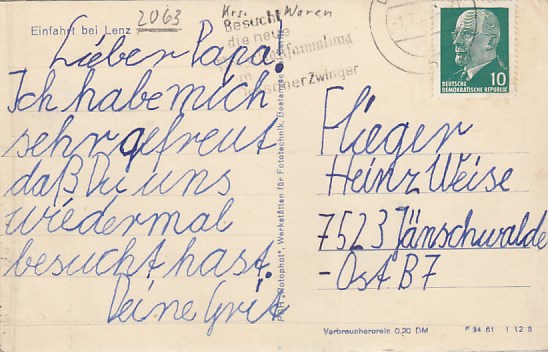 Einfahrt bei Lenz
2063
Krs. Waren
Besucht
die neue
sammlung
Zwinger
Lieber Papa!
Ich habe mich
sehr gefreut
daß Du uns
wiedermal
besucht hast.
Deine Grit
DEUTSCHE
DEMOKRATISCHE REPUBLIK
10
Flieger
Heinz Weise
7523 Jänschwalde
-Ost B7
"Rotophot", Werkstätten für Fototechnik,
Verbraucherpreis 0,20 DM
F 34 61 1 12 5